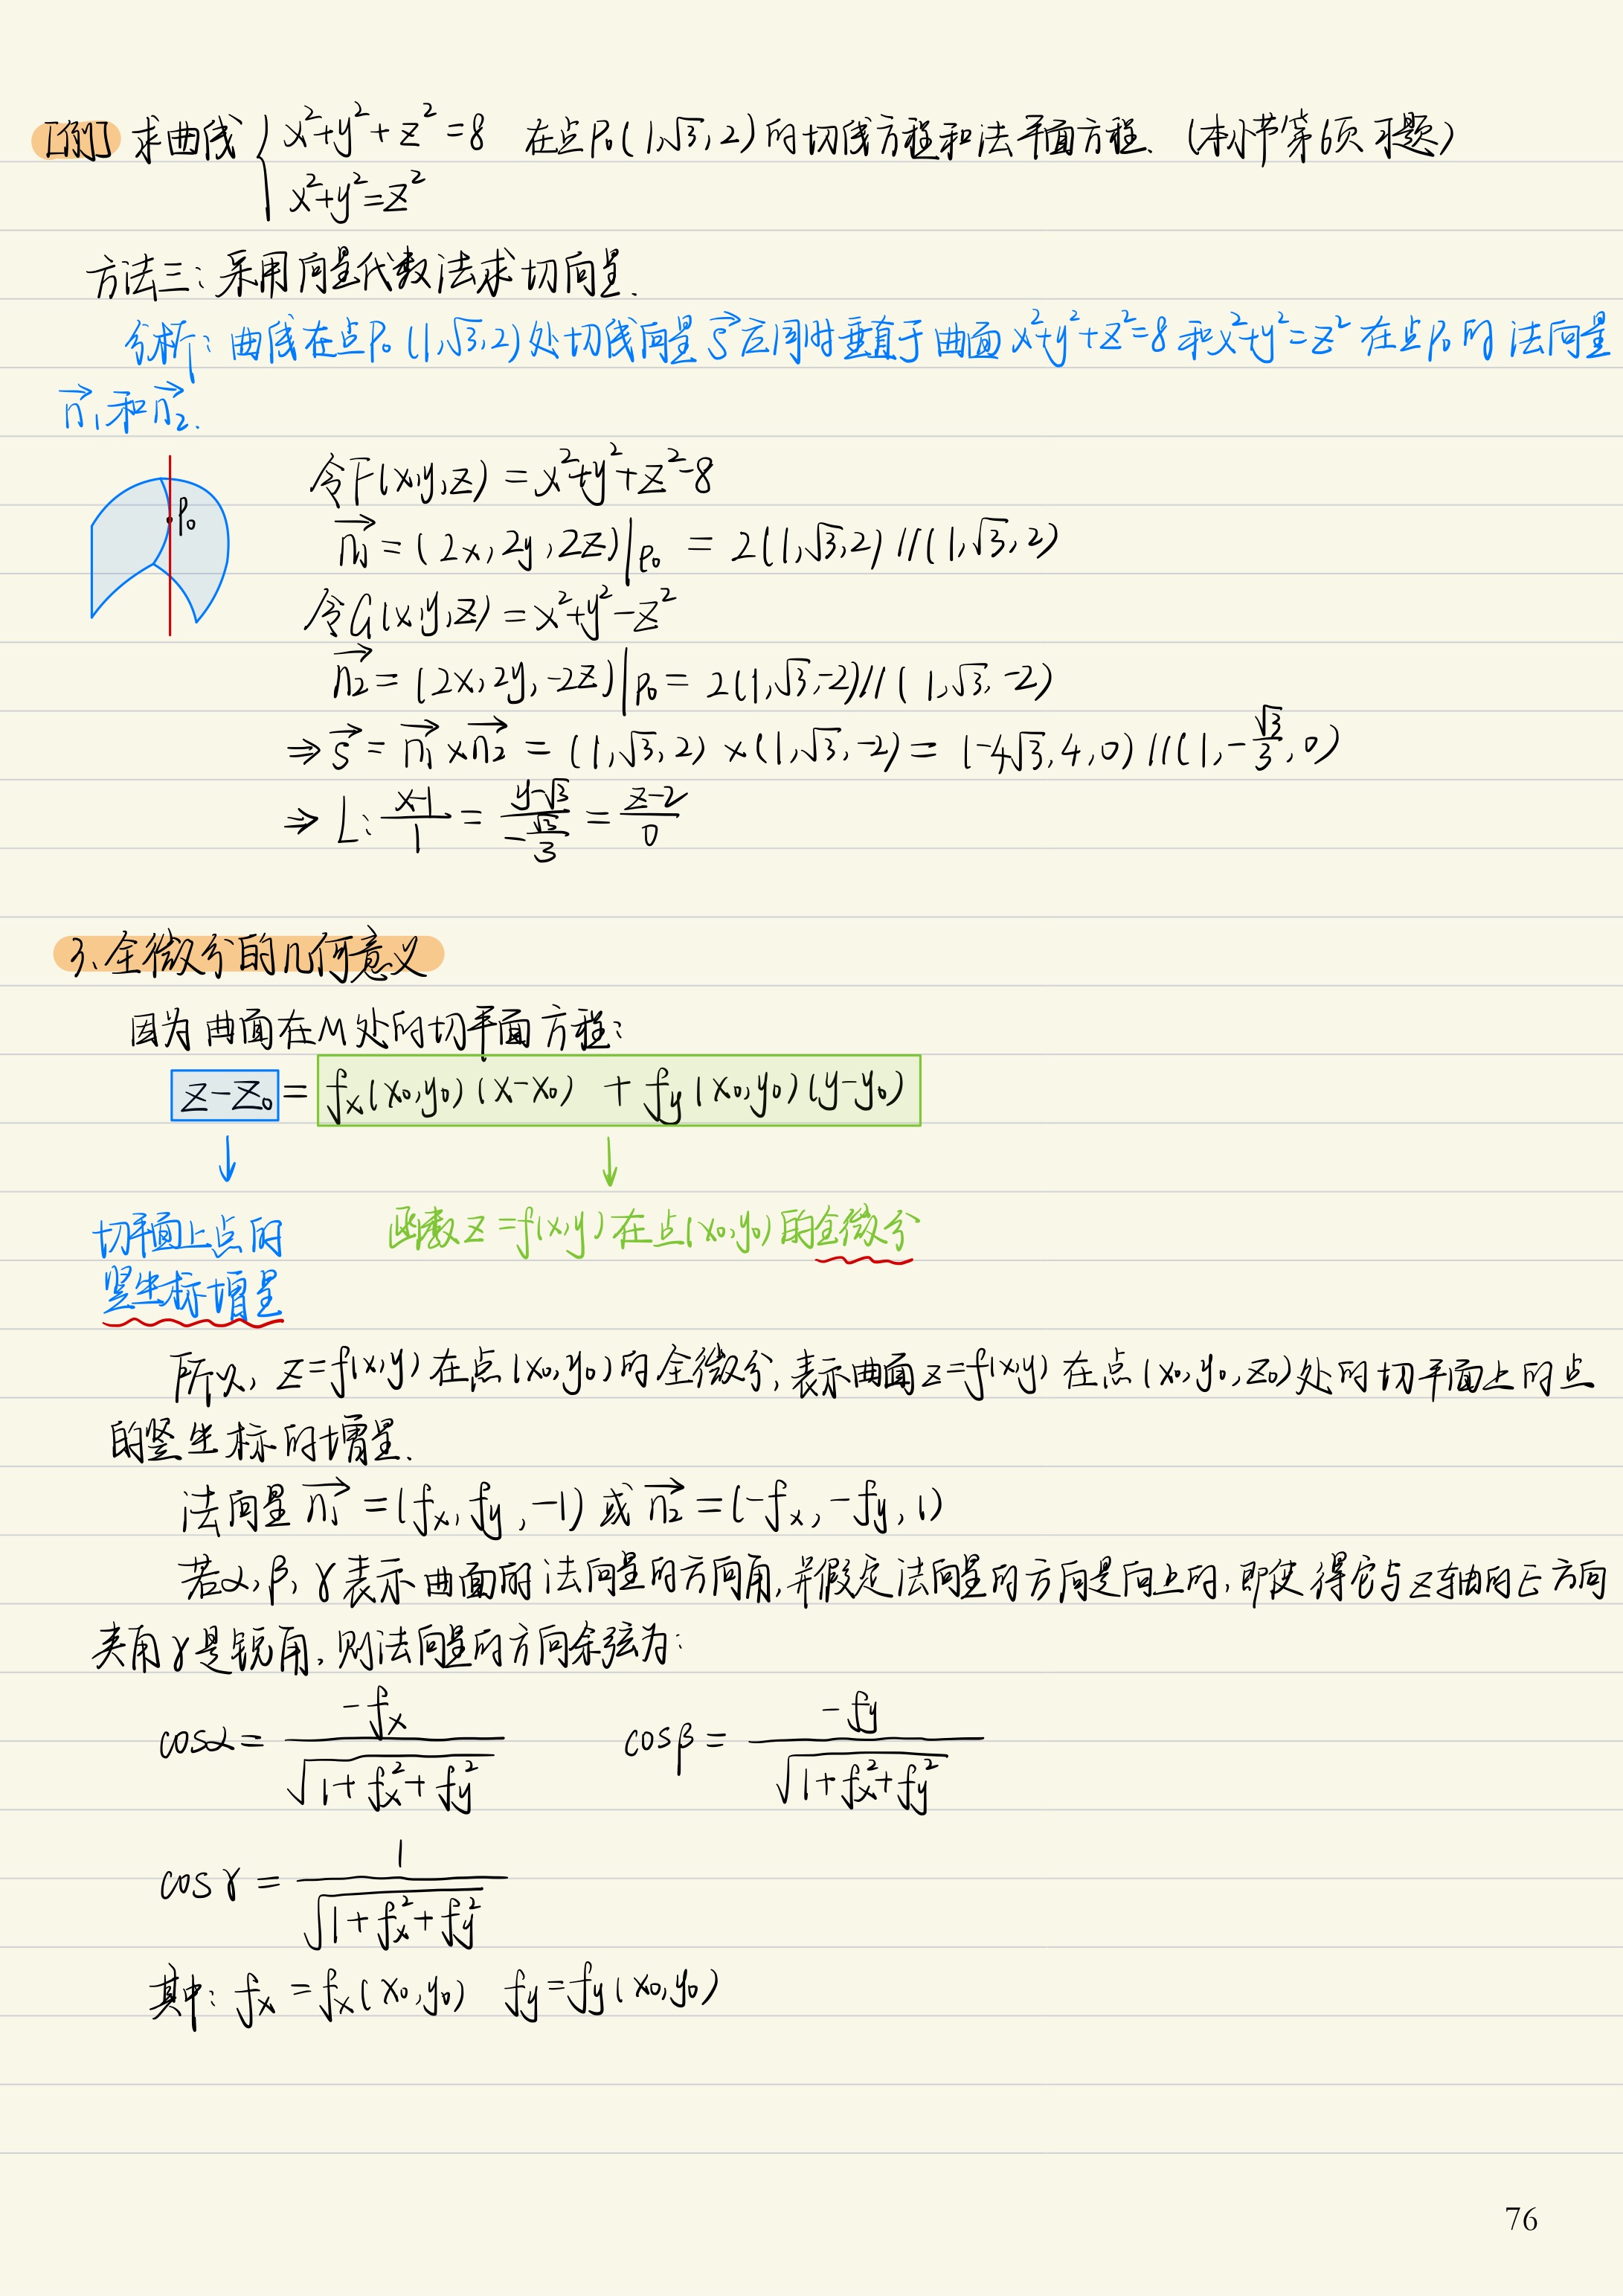 [例] 求曲线 { x²+y²+z²=8 在点P₀(1,√3,2)的切线方程和法平面方程. (本小节第6页习题)
x²+y²=z²
方法三:采用向量代数法求切向量.
分析:曲线在点P₀(1,√3,2)处切线向量s⃗应同时垂直于曲面x²+y²+z²=8和x²+y²=z²在点P₀的法向量
n⃗₁和n⃗₂.
P₀
令F(x,y,z)=x²+y²+z²-8
n⃗₁=(2x,2y,2z)|P₀ = 2(1,√3,2)//(1,√3,2)
令G(x,y,z)=x²+y²-z²
n⃗₂=(2x,2y,-2z)|P₀ = 2(1,√3,-2)//(1,√3,-2)
⇒ s⃗ = n⃗₁×n⃗₂ = (1,√3,2)×(1,√3,-2) = (-4√3,4,0)//(1,-√3/3,0)
⇒ L: (x-1)/1 = (y-√3)/(-√3/3) = (z-2)/0
3、全微分的几何意义
因为曲面在M处的切平面方程:
z-z₀ = fx(x₀,y₀)(x-x₀) + fy(x₀,y₀)(y-y₀)
↓ ↓
切平面上点的 函数z=f(x,y)在点(x₀,y₀)的全微分
竖坐标增量
所以, z=f(x,y)在点(x₀,y₀)的全微分,表示曲面z=f(x,y)在点(x₀,y₀,z₀)处的切平面上的点
的竖坐标的增量.
法向量 n⃗₁=(fx,fy,-1)或n⃗₂=(-fx,-fy,1)
若α,β,γ表示曲面的法向量的方向角,并假定法向量的方向是向上的,即使得它与z轴的正方向
夹角γ是锐角,则法向量的方向余弦为:
cosα = -fx/√(1+fx²+fy²) cosβ = -fy/√(1+fx²+fy²)
cosγ = 1/√(1+fx²+fy²)
其中: fx=fx(x₀,y₀) fy=fy(x₀,y₀)
76